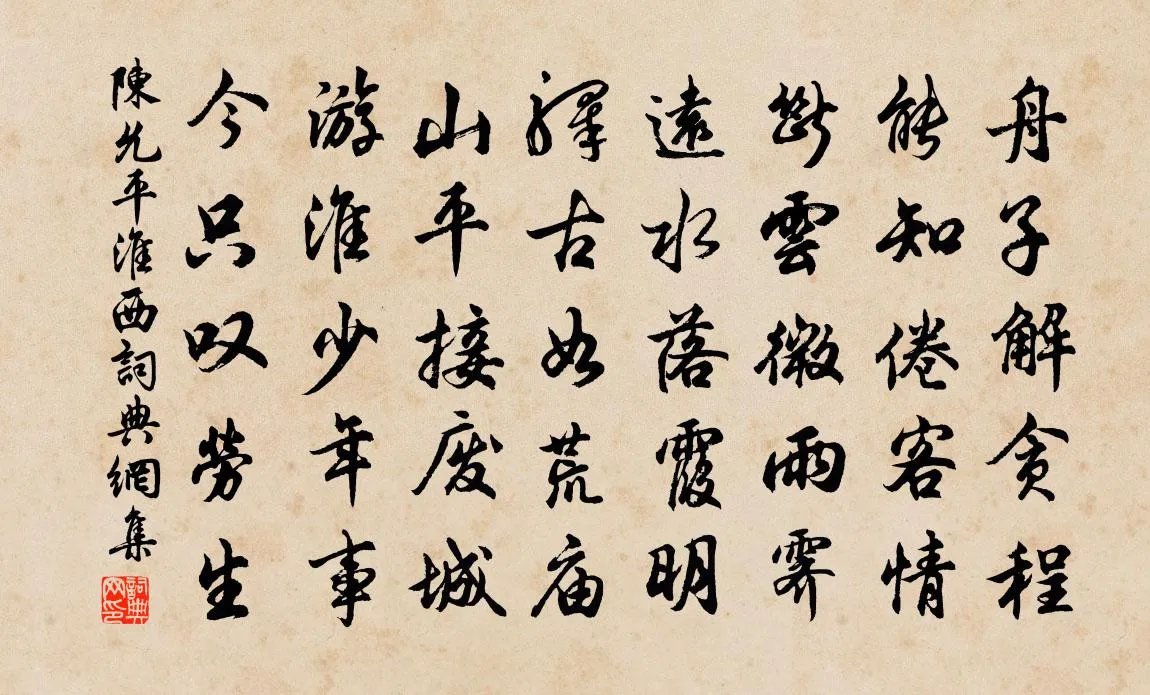 舟子解貪程
能知倦客情
斷雲微雨霽
遠水落霞明
驛古如荒庙
山平接废城
游淮少年事
今只叹勞生
陳允平淮西詞典網集
詞典网印